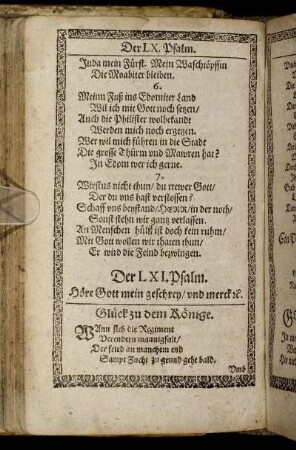 Der LX. Psalm.
Juda mein Fürst. Mein Waschtöpffin
Die Moabiter bleiben.
6.
Meinn Fuß ins Edomiter Land
Wil ich mit Gott noch setzen/
Auch die Philister wolbekandt
Werden mich noch ergetzen.
Wer wil mich führen in die Stadt
Die grosse Thürm vnd Mawren hat?
In Edom wer ich gerne.
7.
Wirstus nicht thun/ du trewer Gott/
Der du vns hast verstossen?
Schaff vns beystand/ HERR/ in der noth/
Sonst stehn wir gantz verlassen.
An Menschen hülff ist doch kein ruhm/
Mit Gott wollen wir thaten thun/
Er wird die Feind bezwingen.
Der LXI. Psalm.
Höre Gott mein geschrey/ vnd merck ꝛc.
Glück zu dem Könige.
WAnn sich die Regiment
Verendern mannigfalt/
Der fried an manchem end
Sampt Zucht zu grund geht bald.
Vmb